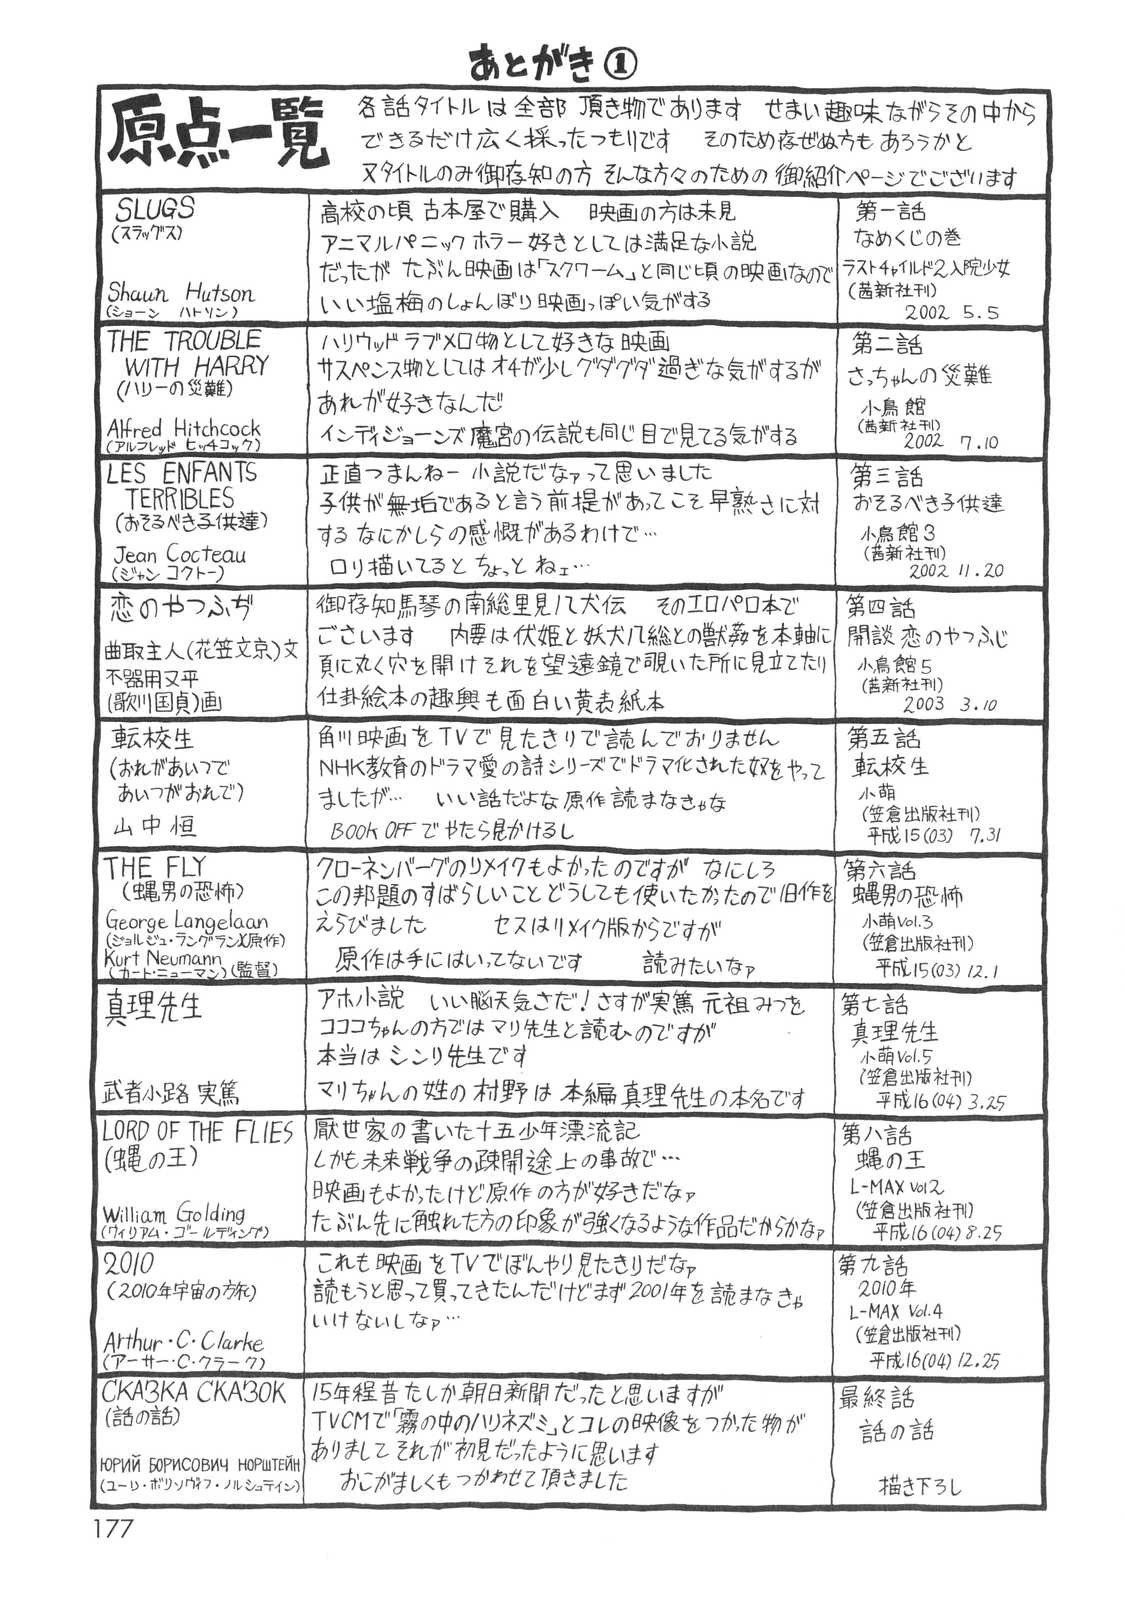 あとがき①
原点一覧
各話タイトルは全部 頂き物であります せまい趣味ながらその中から
できるだけ広く採ったつもりです そのため存ぜぬ方もあろうかと
又タイトルのみ御存知の方 そんな方々のための 御紹介ページでございます
SLUGS
(スラッグス)
Shaun Hutson
(ショーン ハトソン)
高校の頃 古本屋で購入 映画の方は未見
アニマルパニックホラー好きとしては満足な小説
だったが たぶん映画は「スクワーム」と同じ頃の映画なので
いい塩梅のしょんぼり映画っぽい気がする
第一話
なめくじの巻
ラストチャイルド2入院少女
(茜新社刊)
2002 5.5
THE TROUBLE
WITH HARRY
(ハリーの災難)
Alfred Hitchcock
(アルフレッド ヒッチコック)
ハリウッドラブメロ物として好きな映画
サスペンス物としてはオチが少しグダグダ過ぎな気がするが
あれが好きなんだ
インディジョーンズ魔宮の伝説も同じ目で見てる気がする
第二話
さっちゃんの災難
小鳥館
(茜新社刊)
2002 7.10
LES ENFANTS
TERRIBLES
(おそるべき子供達)
Jean Cocteau
(ジャン コクトー)
正直つまんねー小説だなァって思いました
子供が無垢であると言う前提があってこそ早熟さに対
するなにかしらの感慨があるわけで…
ロリ描いてると ちょっと ねェ…
第三話
おそるべき子供達
小鳥館3
(茜新社刊)
2002 11.20
恋のやつふぢ
曲取主人(花笠文京)文
不器用又平
(歌川国貞)画
御存知馬琴の南総里見八犬伝 そのエロパロ本で
ございます 内要は伏姫と妖犬八総との獣姦を本軸に
頁に丸く穴を開けそれを望遠鏡で覗いた所に見立てたり
仕掛絵本の趣興も面白い黄表紙本
第四話
開談 恋のやつふじ
小鳥館5
(茜新社刊)
2003 3.10
転校生
(おれがあいつで
あいつがおれで)
山中恒
角川映画をTVで見たきりで読んでおりません
NHK教育のドラマ愛の詩シリーズでドラマ化された奴をやって
ましたが… いい話だよな原作読まなきゃな
BOOK OFFでやたら見かけるし
第五話
転校生
小萌
(笠倉出版社刊)
平成15(03) 7.31
THE FLY
(蝿男の恐怖)
George Langelaan
(ジョルジュ・ランジュラン)(原作)
Kurt Neumann
(カート・ニューマン)(監督)
クローネンバーグのリメイクもよかったのですが なにしろ
この邦題のすばらしいこと どうしても使いたかったので旧作を
えらびました セスはリメイク版からですが
原作は手にはいってないです 読みたいなァ
第六話
蝿男の恐怖
小萌Vol.3
(笠倉出版社刊)
平成15(03) 12.1
真理先生
武者小路 実篤
アホ小説 いい脳天気さだ!さすが実篤 元祖みつを
コココちゃんの方ではマリ先生と読むのですが
本当は シンリ先生です
マリちゃんの姓の村野は 本編真理先生の本名です
第七話
真理先生
小萌Vol.5
(笠倉出版社刊)
平成16(04) 3.25
LORD OF THE FLIES
(蝿の王)
William Golding
(ウィリアム・ゴールディング)
厭世家の書いた十五少年漂流記
しかも未来戦争の疎開途上の事故で…
映画もよかったけど原作の方が好きだなァ
たぶん先に触れた方の印象が強くなるような作品だからかなァ
第八話
蝿の王
L-MAX Vol2
(笠倉出版社刊)
平成16(04) 8.25
2010
(2010年宇宙の旅)
Arthur・C・Clarke
(アーサー・C・クラーク)
これも映画をTVでぼんやり見たきりだなァ
読もうと思って買ってきたんだけどまず2001年を読まなきゃ
いけないしなァ…
第九話
2010年
L-MAX Vol.4
(笠倉出版社刊)
平成16(04) 12.25
СКАЗКА СКАЗОК
(話の話)
ЮРИЙ БОРИСОВИЧ НОРШТЕЙН
(ユーリ・ボリソヴィフ・ノルシュテイン)
15年程昔たしか朝日新聞だったと思いますが
TVCMで「霧の中のハリネズミ」とコレの映像をつかった物が
ありまして それが初見だったように思います
おこがましくもつかわせて頂きました
最終話
話の話
描き下ろし
177